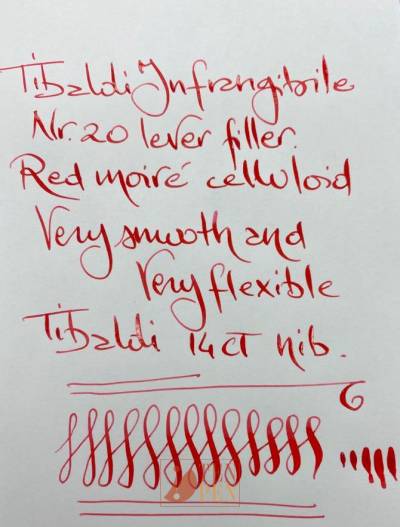 Tibaldi Infrangibile
Nr. 20 lever filler.
Red moiré celluloid
Very smooth and
Very flexible
Tibaldi 14 ct nib.